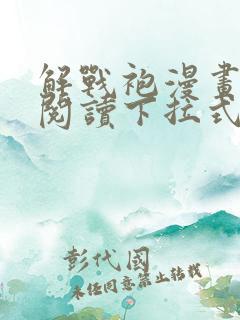 解戰袍漫畫
閱讀下拉式
彭代國
未经同意禁止转载